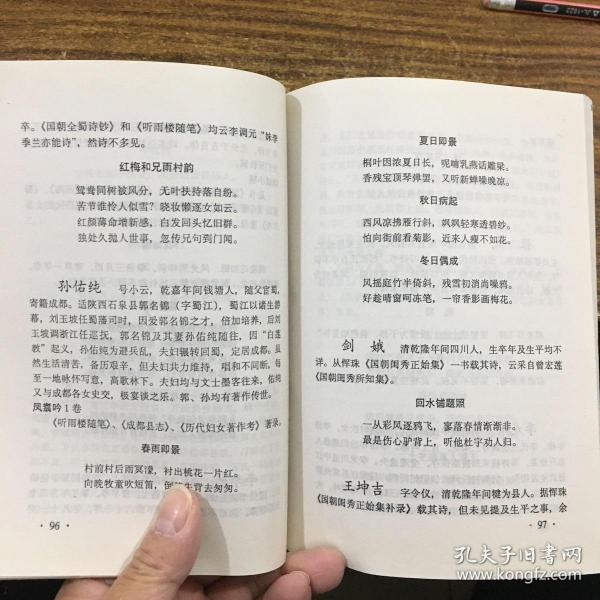 卒。《国朝全蜀诗钞》和《听雨楼随笔》均云李调元“妹李
季兰亦能诗”,然诗不多见。
红梅和兄雨村韵
鸳鸯同树被风分,无叶扶持落自纷。
苦节谁怜人似雪?晓妆懒逐女如云。
红颜薄命增新感,白发回头忆旧群。
独处久抛人世事,忽传兄句到门闻。
孙佑纯 号小云,乾嘉年间钱塘人,随父官蜀,
寄籍成都。适陕西石泉县郭名锦(字蜀江),蜀江以诸生游
幕,刘玉坡任蜀藩司时,因爱郭名锦之才,倍加培养,后刘
玉坡调浙江任巡抚,郭名锦及其妻孙佑纯随往,因“白莲
教”起义,孙佑纯为避兵乱,夫妇辗转回蜀,定居成都。虽
然生活清苦,备历艰辛,但夫妇共力维持,唱和不间断,每
至一地咏怀写意,高歌林下。夫妇均与文士墨客往来,佑纯
又与成都各女史交,极宴谈之乐。郭、孙均有著作传世。
凤翥吟1卷
《听雨楼随笔》、《成都县志》、《历代妇女著作考》著录。
春雨即景
村前村后雨冥濛,衬出桃花一片红。
向晚牧童吹短笛,倒 牛背去匆匆。
· 96 ·
夏日即景
桐叶因浓夏日长,呢喃乳燕话雕梁。
香残宝顶琴弹罢,又听新蝉噪晚凉。
秋日病起
西风凉拂雁行斜,飒飒轻寒透碧纱。
怕向街前看菊影,近来人瘦不如花。
冬日偶成
风摇庭竹半倚斜,残雪初消尚噪鸦。
好趁晴窗呵冻笔,一帘香影画梅花。
剑娥 清乾隆年间四川人,生卒年及生平均不
详。从恽珠《国朝闺秀正始集》一书载其诗,云采自曾宏莲
《国朝闺秀所知集》。
回水铺题照
一从彩凤逐鸦飞,寥落春情渐渐非。
最是伤心驴背上,听他杜字动人归。
王坤吉 字令仪,清乾隆年间犍为县人。据恽珠
《国朝闺秀正始集补录》载其诗,但未见提及生平之事,余
· 97 ·
孔夫子旧书网
www.kongfz.com